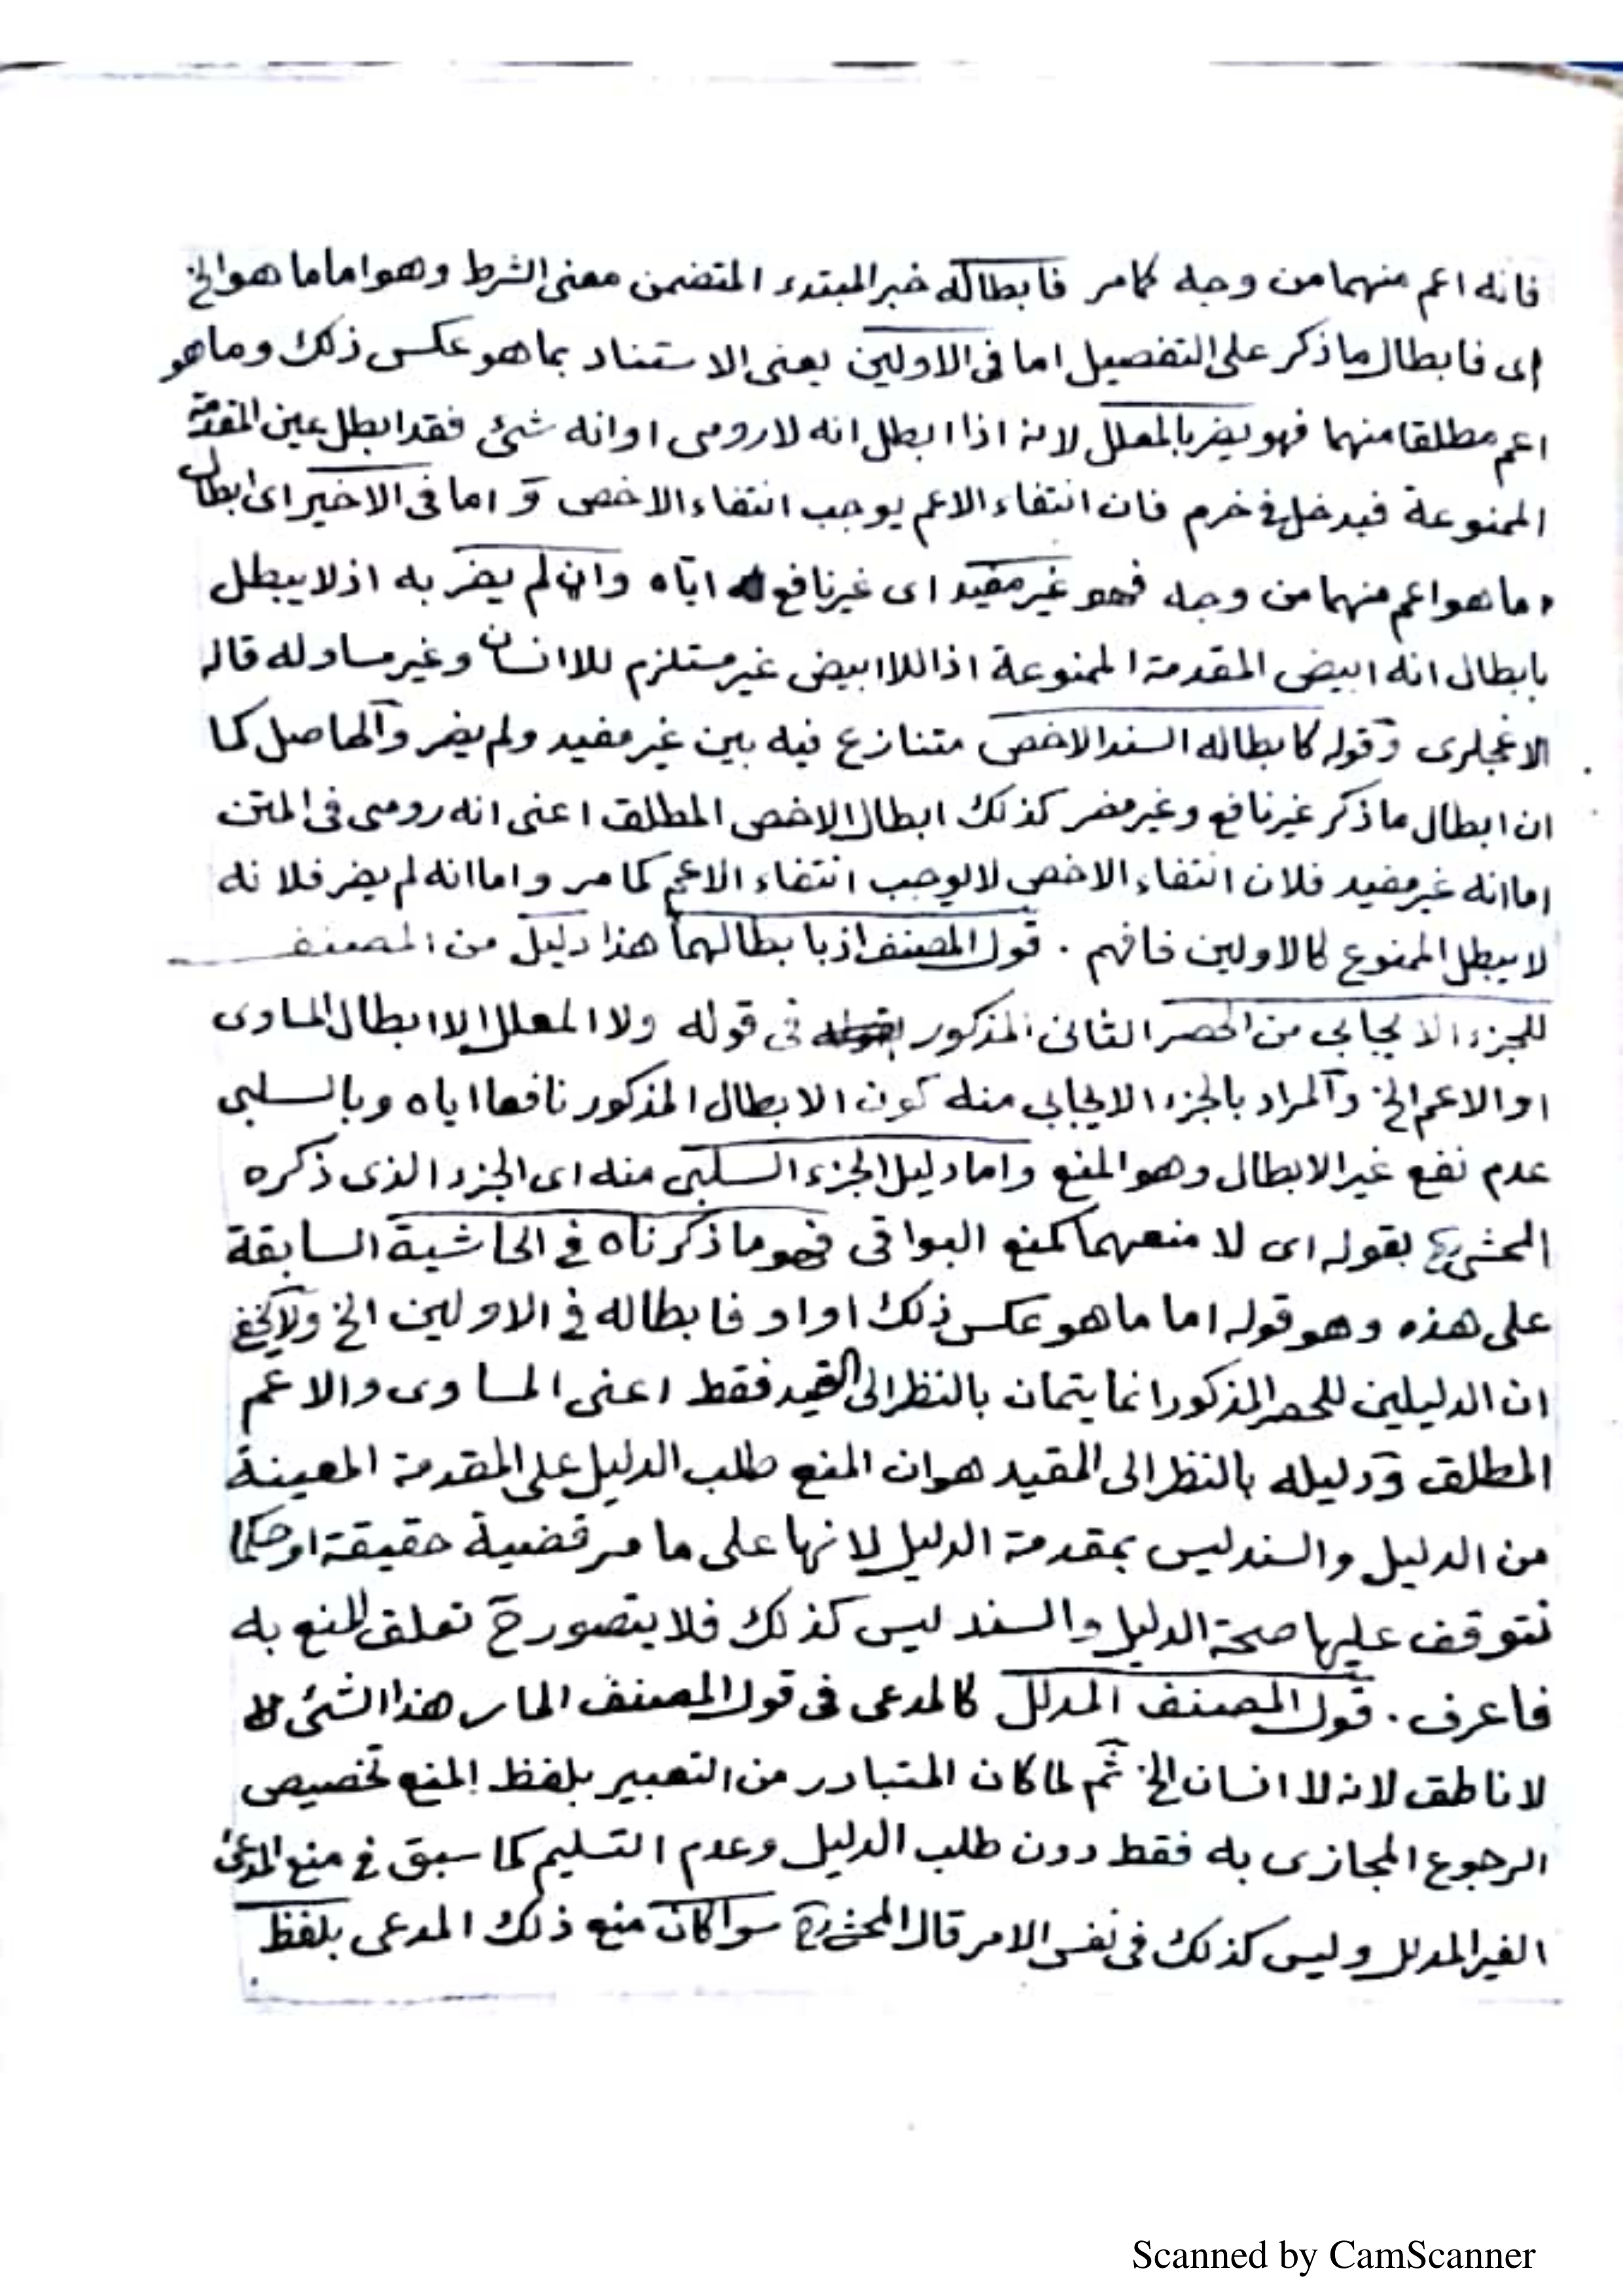 فانه اعم منهما من وجه كما مر فابطاله خبر المبتدء المتضمن معنى الشرط وهو اما ما هو الخ
اى فابطال ما ذكر على التفصيل اما فى الاولين يعنى الاستناد بما هو عكس ذلك وما هو
اعم مطلقا منهما فهو يضر بالمعلل لانه اذا ابطل انه لا رومى او انه شئ فقد ابطل عين المقدمة
الممنوعة فيدخل فى خرم فان انتفاء الاعم يوجب انتفاء الاخص و اما فى الاخير اى ابطال
ما هو اعم منهما من وجه فهو غير مفيد اى غير نافع اياه وان لم يضر به اذ لا يبطل
بابطال انه ابيض المقدمة الممنوعة اذ اللا ابيض غير مستلزم للا انسان وغير مساو له قاله
الاغجلرى وقوله كابطاله السند الاخص متنازع فيه بين غير مفيد ولم يضر والحاصل كما
ان ابطال ما ذكر غير نافع وغير مضر كذلك ابطال الاخص المطلق اعنى انه رومى فى المتن
اما انه غير مفيد فلان انتفاء الاخص لا يوجب انتفاء الاعم كما مر واما انه لم يضر فلانه
لا يبطل الممنوع كالاولين فافهم . قول المصنف اذ بابطالهما هذا دليل من المصنف
للجزء الايجابى من الحصر الثانى المذكور فى قوله ولا المعلل الا ابطال المساوى
او الاعم الخ والمراد بالجزء الايجابى منه كون الابطال المذكور نافعا اياه وبالسلبى
عدم نفع غير الابطال وهو المنع واما دليل الجزء السلبى منه اى الجزء الذى ذكره
المحشى بقوله اى لا منعهما كمنع البواقى فهو ما ذكرناه فى الحاشية السابقة
على هذه وهو قوله اما ما هو عكس ذلك او او فابطاله فى الاولين الخ ولا يخفى
ان الدليلين للحصر المذكور انما يتمان بالنظر الى القيد فقط اعنى المساوى والاعم
المطلق ودليله بالنظر الى المقيد هو ان المنع طلب الدليل على المقدمة المعينة
من الدليل والسند ليس بمقدمة الدليل لانها على ما مر قضية حقيقة او حكما
تتوقف عليها صحة الدليل والسند ليس كذلك فلا يتصور ح تعلق المنع به
فاعرف . قول المصنف المدلل كالمدعى فى قول المصنف المار هذا الشئ
لا ناطق لانه لا انسان الخ ثم لما كان المتبادر من التعبير بلفظ المنع تخصيص
الرجوع المجازى به فقط دون طلب الدليل وعدم التسليم كما سبق فى منع المدعى
الغير المدلل وليس كذلك فى نفس الامر قال المحشى سوا كان منع ذلك المدعى بلفظ
Scanned by CamScanner